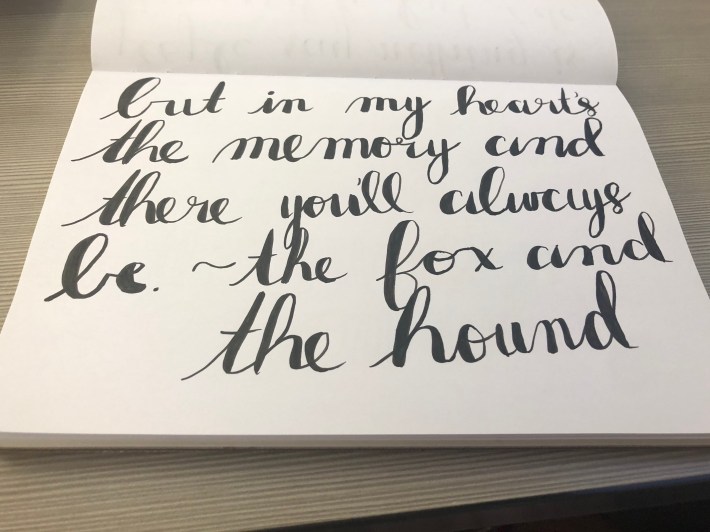 but in my heart's
the memory and
there you'll always
be. ~the fox and
the hound